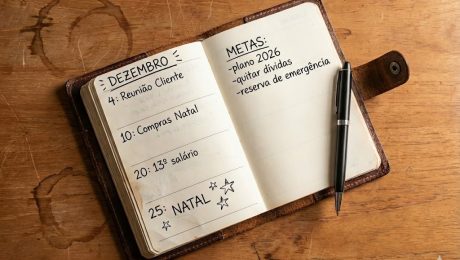 DEZEMBRO
4: Reunião Cliente
10: Compras Natal
20: 13º salário
25: NATAL
METAS:
-plano 2026
-quitar dívidas
-reserva de emergência